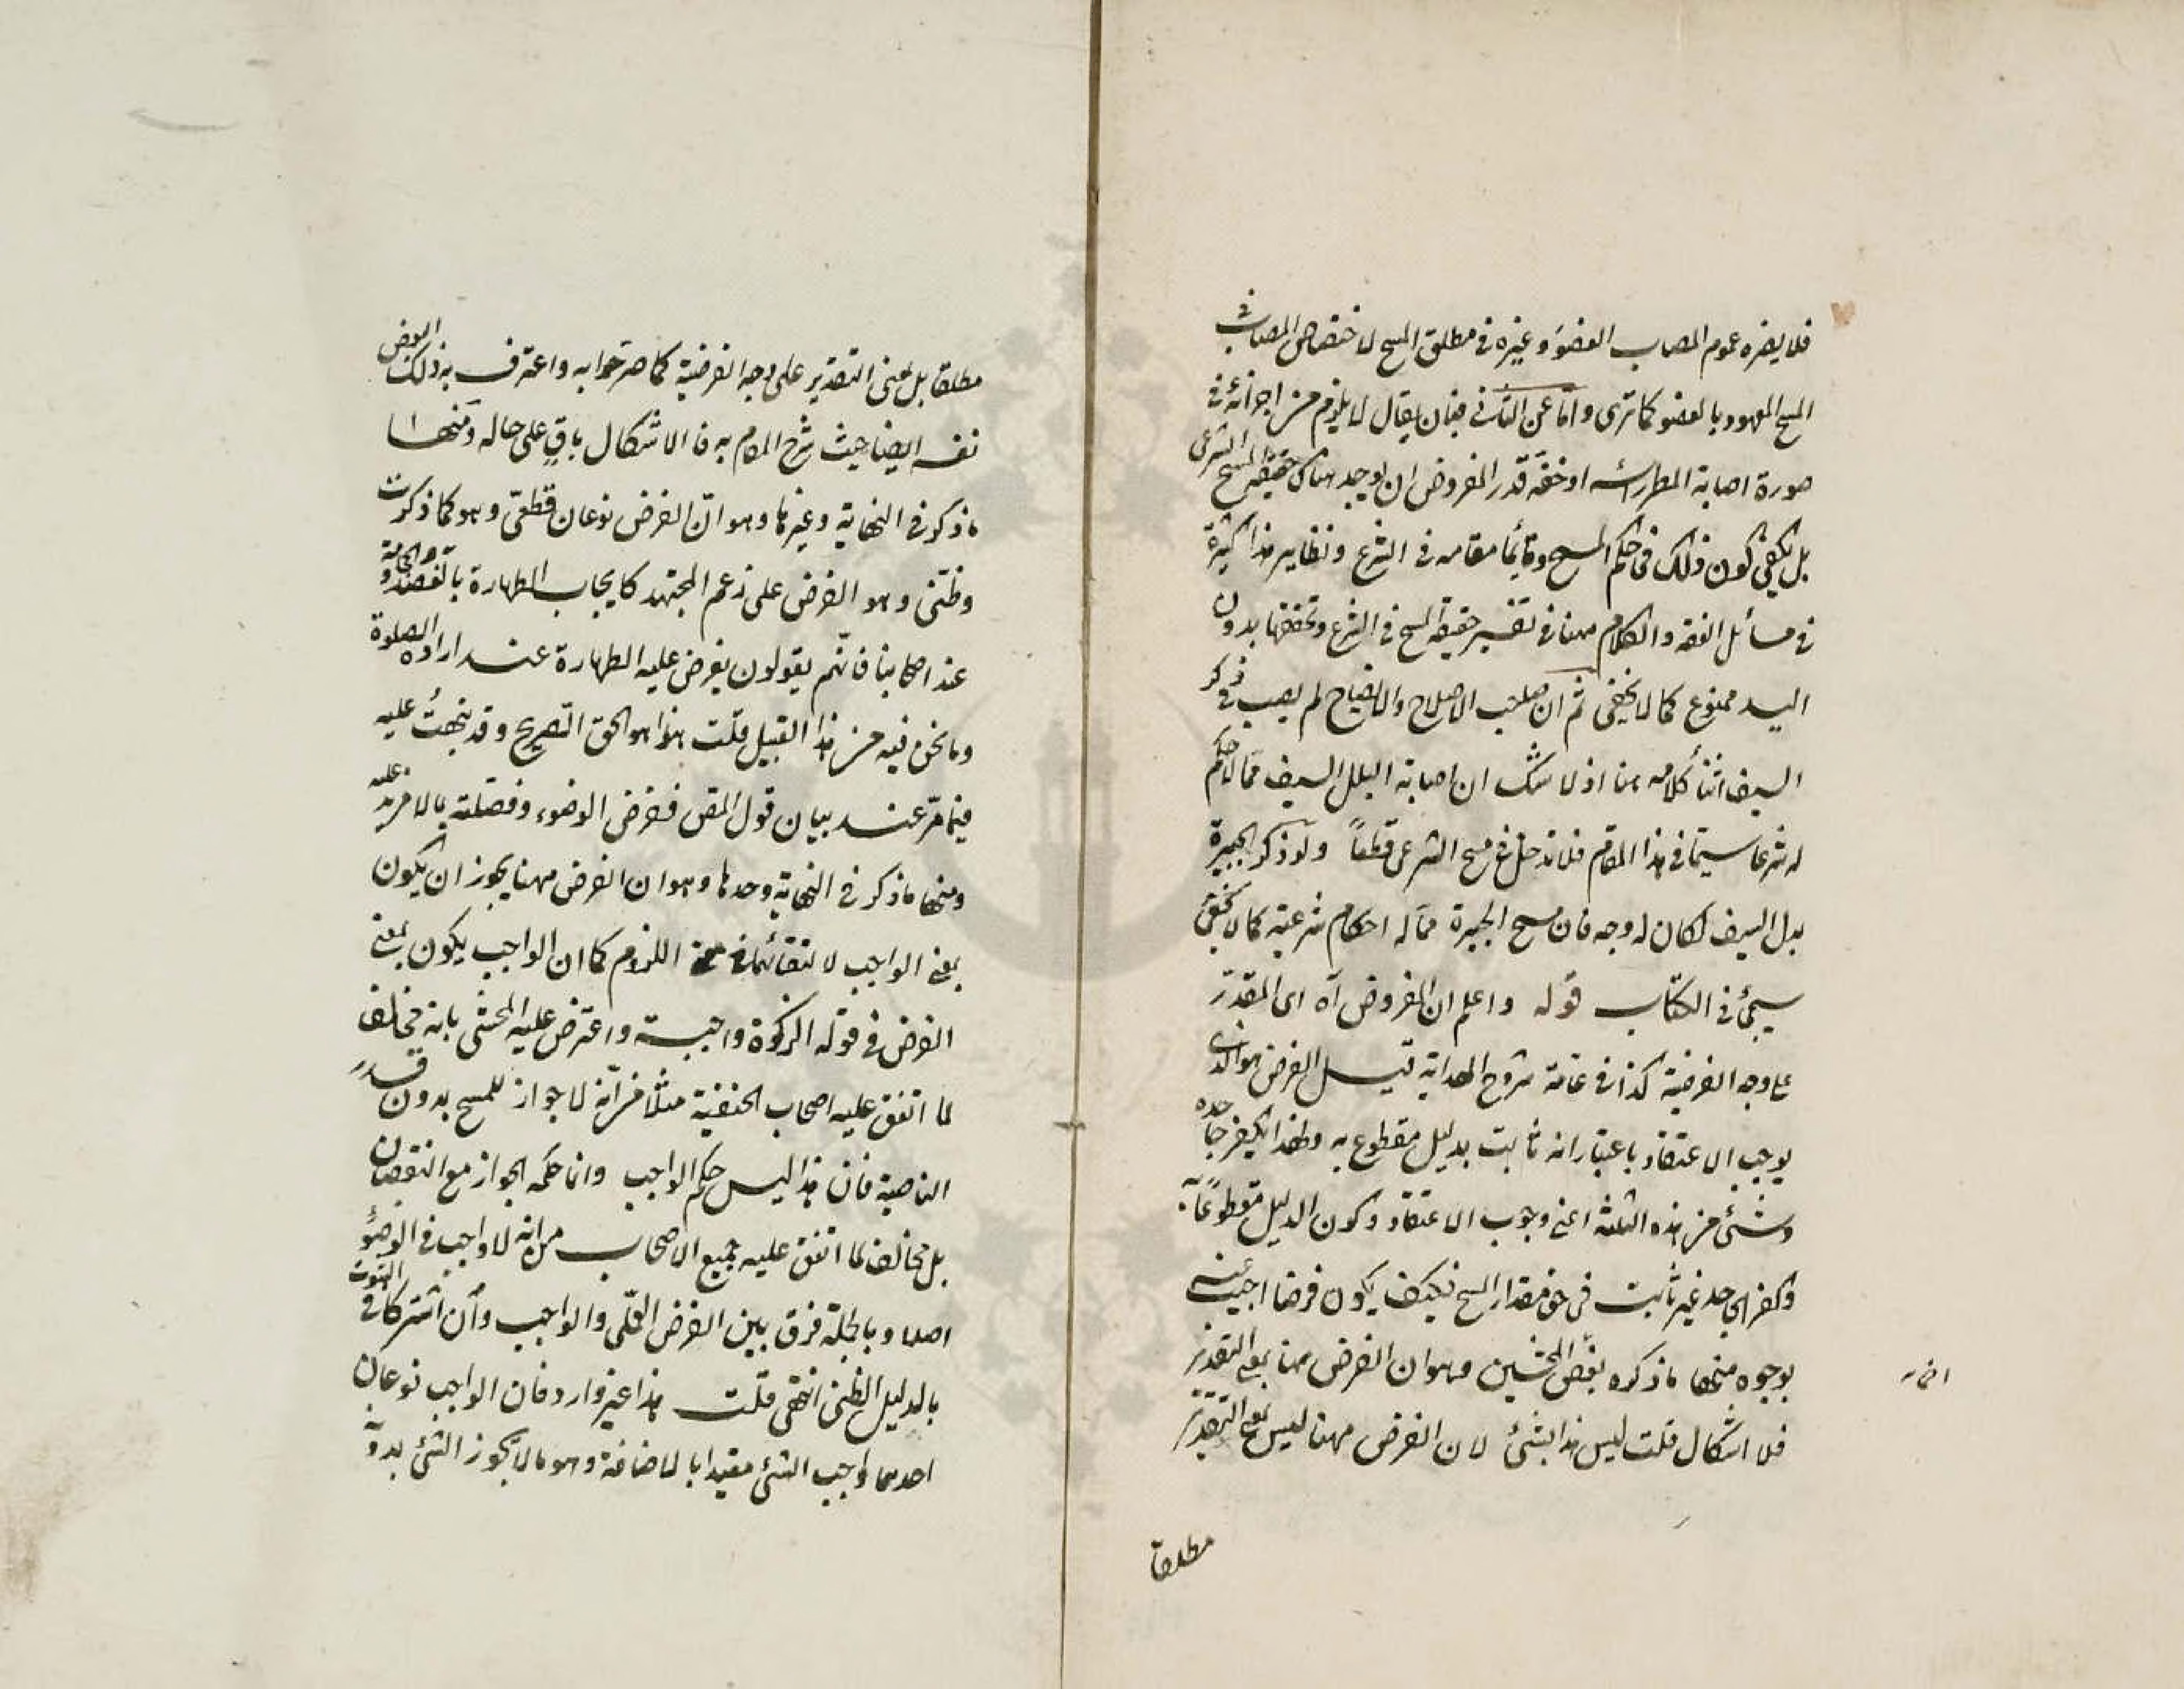 فلا يضره عموم المصاب العضو وغيره في مطلق المسح لاختصاص المصاب في
المسح المعهود بالعضو كما ترى واما عن الثاني فبان يقال لا يلزم من اجزائه في
صورة اصابة المطر رأسه او خفه قدر المفروض ان يوجد هناك حقيقة المسح الشرعي
بل يكفي كون ذلك في حكم المسح وقائما مقامه في الشرع ونظاير هذا كثيرة
في مسائل الفقه والكلام ههنا في تفسير حقيقة المسح في الشرع وتحققها بدون
اليد ممنوع كما لا يخفى ثم ان صاحب الاصلاح والايضاح لم يصب في ذكر
السيف اثناء كلامه هنا اذ لا شك ان اصابة البلل السيف مما لا حكم
له شرعا سيما في هذا المقام فلا تدخل في مسح الشرعي قطعاً ولو ذكر الجبيرة
بدل السيف لكان له وجه فان مسح الجبيرة مما له احكام شرعية كما لا يخفى
سيجئ في الكتاب قوله واعلم ان المفروض آه اى المقدر
على وجه الفرضية كذا في عامة شروح الهداية قيل الفرض هو الذى
يوجب الاعتقاد باعتبار انه ثابت بدليل مقطوع به ولهذا يكفر جاحده
وشئ من هذه الثلثة اعنى وجوب الاعتقاد وكون الدليل مقطوعًا به
وكفر الجاحد غير ثابت في حق مقدار المسح فكيف يكون فرضا اجيب عنه
بوجوه منها ما ذكره بعض المحشين وهو ان الفرض ههنا بمعنى التقدير
فلا اشكال قلت ليس هذا بشئ لان الفرض ههنا ليس بمعنى التقدير
مطلقا
مطلقا بل بمعنى التقدير على وجه الفرضية كما صرحوا به واعترف به ذلك البعض
نفسه ايضا حيث شرح المقام به فالاشكال باقٍ على حاله ومنها
ما ذكر في النهاية وغيرها وهو انّ الفرض نوعان قطعىّ وهو كما ذكرت
وظنّى وهو الفرض على زعم المجتهد كايجاب الطهارة بالفصد والحجامة
عند اصحابنا فانّهم يقولون يفرض عليه الطهارة عند ارادة الصلوة
وما نحن فيه من هذا القبيل قلت هذا هو الحق الصريح وقد نبهتُ عليه
فيما مرّ عند بيان قول المص ففرض الوضوء وفصلته بما لا مزيد عليه
ومنها ما ذكر في النهاية وحدها وهو ان الفرض ههنا يجوز ان يكون
بمعنى الواجب لالتقائهما في معنى اللزوم كما ان الواجب يكون بمعنى
الفرض في قوله الزكوة واجبة واعترض عليه المحشى بانه مخالف
لما اتفق عليه اصحاب الحنفية مثلا من انّه لا جواز للمسح بدون قدر
الناصية فان هذا ليس حكم الواجب وانما حكمه الجواز مع النقصان
بل مخالف لما اتفق عليه جميع الاصحاب من انه لا واجب في الوضوء
اصلا وبالجملة فرق بين الفرض العملى والواجب وان اشتركا في الثبوت
بالدليل الظنى انتهى قلت هذا غير وارد فان الواجب نوعان
احدهما واجب الشئ مقيدا بالاضافة وهو ما لا يجوز الشئ بدونه